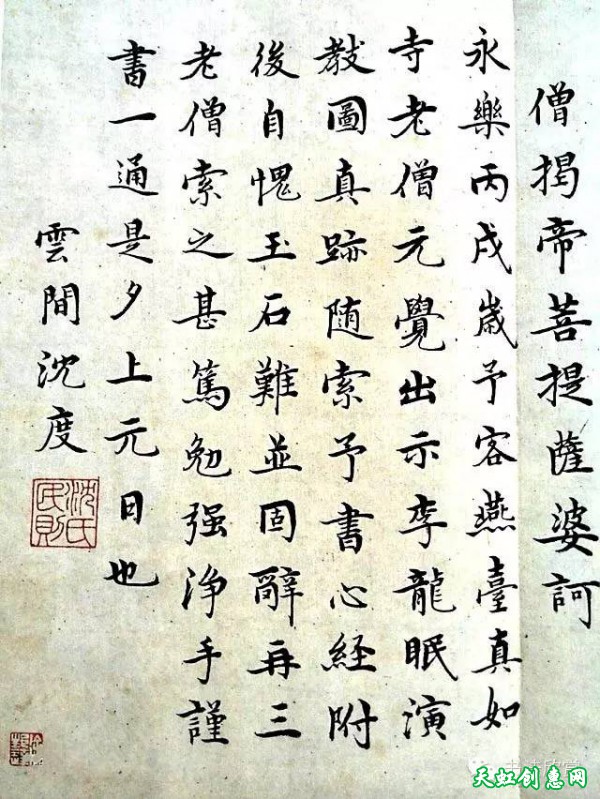 僧揭帝菩提薩婆訶
永樂丙戌歲予客燕臺真如
寺老僧元覺出示李龍眠演
教圖真跡随索予書心經附
後自愧玉石難並固辭再三
老僧索之甚篤勉强淨手謹
書一通是夕上元日也
雲間沈度
沈氏民則
天虹创意网